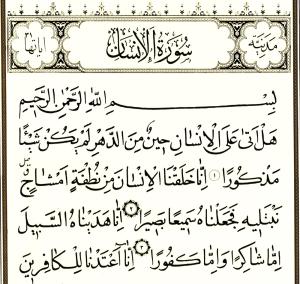 مدنية سورة الإنسان آياتها
بِسْمِ اللَّهِ الرَّحْمَٰنِ الرَّحِيمِ
هَلْ أَتَىٰ عَلَى الْإِنْسَانِ حِينٌ مِنَ الدَّهْرِ لَمْ يَكُنْ شَيْئًا
مَذْكُورًا ١ إِنَّا خَلَقْنَا الْإِنْسَانَ مِنْ نُطْفَةٍ أَمْشَاجٍ
نَبْتَلِيهِ فَجَعَلْنَاهُ سَمِيعًا بَصِيرًا ٢ إِنَّا هَدَيْنَاهُ السَّبِيلَ
إِمَّا شَاكِرًا وَإِمَّا كَفُورًا ٣ إِنَّا أَعْتَدْنَا لِلْكَافِرِينَ